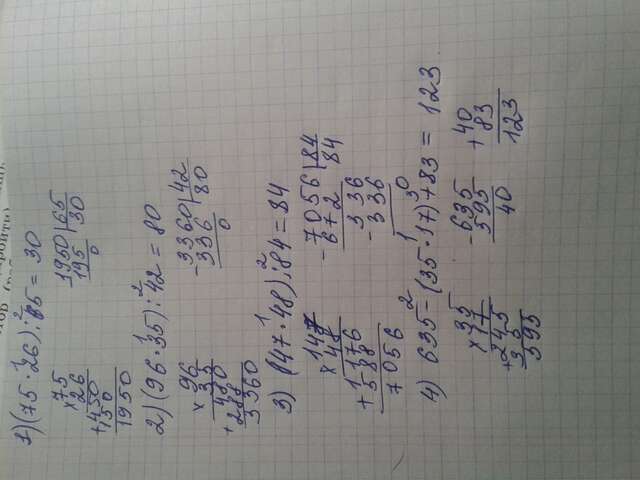 1)(75·26):65=30
75
×26
+450
150
1950
1950|65
195 30
0
2)(96·35):42=80
96
×35
+480
288
3360
-3360|42
336 80
0
3)(147·48):84=84
147
×48
+1176
588
7056
-7056|84
672 84
336
-336
0
4) 635-(35·17)+83=123
35
×17
+245
35
595
-635
595
40
+40
83
123